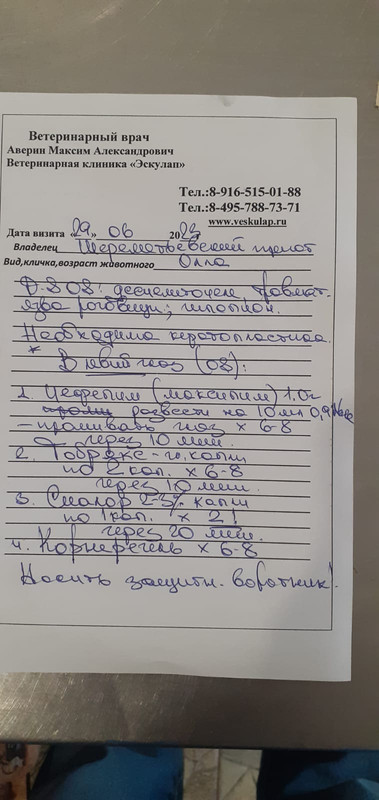 Ветеринарный врач
Аверин Максим Александрович
Ветеринарная клиника «Эскулап»
Тел.:8-916-515-01-88
Тел.:8-495-788-73-71
www.veskulap.ru
Дата визита «29» 06 2023
Владелец Шереметьевский приют
Вид,кличка,возраст животного Олла
D.S OS: десцеметоцеле
язва роговицы,
Необходима кератопластика.
* В левый глаз (OS):
1. Цефепим (максипим) 1,0г
развести на 10 мл 0,9%
– промывать глаз х 6-8
через 10 мин.
2. Тобрекс – гл. капли
по 2 кап. х 6-8
через 10 мин.
3. капли
по 1 кап. х 2!
через 20 мин.
4. Корнерегель х 6-8
Носить защитн. воротник!